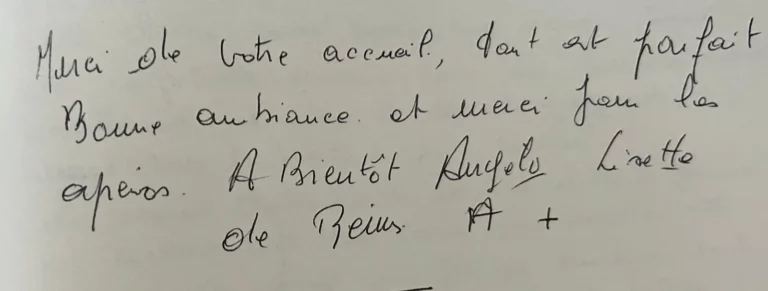 Merci de votre accueil, tout est parfait
Bonne ambiance. et merci pour les
apéros. A Bientôt Angelo Linette
de Reims. A +